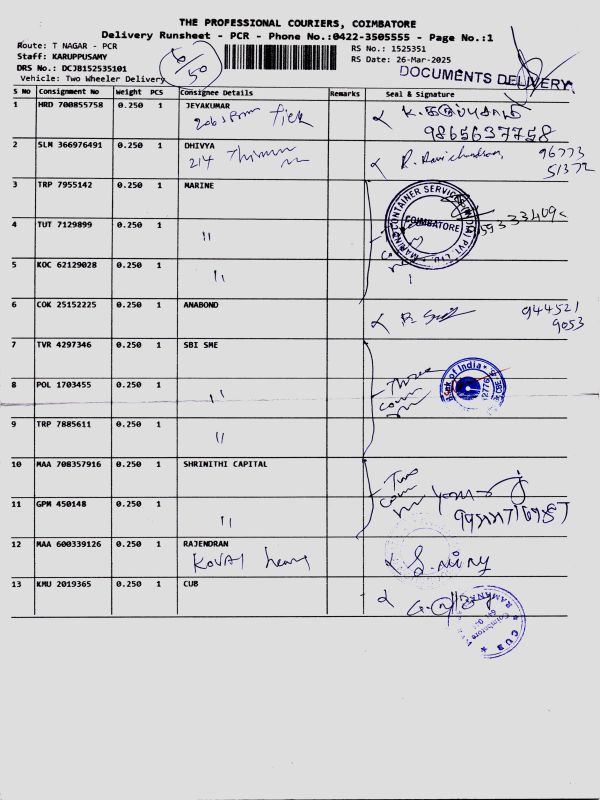 THE PROFESSIONAL COURIERS, COIMBATORE
Delivery Runsheet - PCR - Phone No.:0422-3505555 - Page No.:1
Route: T NAGAR - PCR
RS No.: 1525351
Staff: KARUPPUSAMY
RS Date: 26-Mar-2025
DRS No.: DCJB152535101
Vehicle: Two Wheeler Delivery
50
DOCUMENTS DELIVERY
S No Consignment No Weight PCS Consignee Details Remarks Seal & Signature
1 HRD 700855758 0.250 1 JEYAKUMAR
9865637758
2 SLM 366976491 0.250 1 DHIVYA
214
96773
51372
3 TRP 7955142 0.250 1 MARINE
MARINE CONTAINER SERVICES INDIA PVT. LTD.
COIMBATORE
4 TUT 7129899 0.250 1 "
5 KOC 62129028 0.250 1 "
6 COK 25152225 0.250 1 ANABOND
944521
9053
7 TVR 4297346 0.250 1 SBI SME
Three
Bank of India
8 POL 1703455 0.250 1 "
9 TRP 7885611 0.250 1 "
10 MAA 708357916 0.250 1 SHRINITHI CAPITAL
Two
11 GPM 450148 0.250 1 "
12 MAA 600339126 0.250 1 RAJENDRAN
KOVAI
13 KMU 2019365 0.250 1 CUB
CUB
Coimbatore